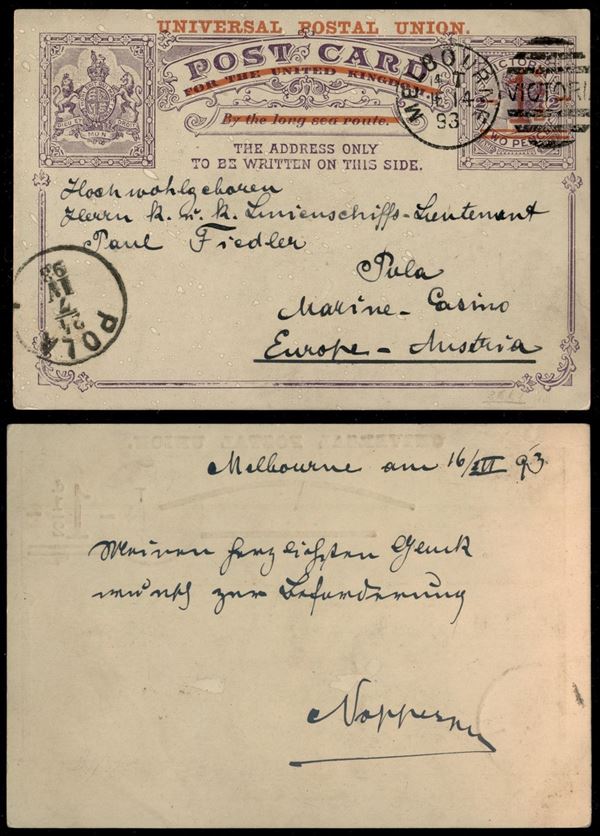 UNIVERSAL POSTAL UNION.
POST CARD
FOR THE UNITED KINGDOM
By the long sea route.
THE ADDRESS ONLY
TO BE WRITTEN ON THIS SIDE.
DIEU ET MON DROIT
VICTORIA
TWO PENCE
MELBOURNE
14
93
VICTORIA
Hochwohlgeboren
Herrn k. u. k. Linienschiffs-Lieutenant
Paul Fiedler
Pola
Marine-Casino
Europe-Austria
POLA
21
7
IV
93
Melbourne am 16/III 93
Meinen herzlichsten Glück
wunsch zur Beförderung